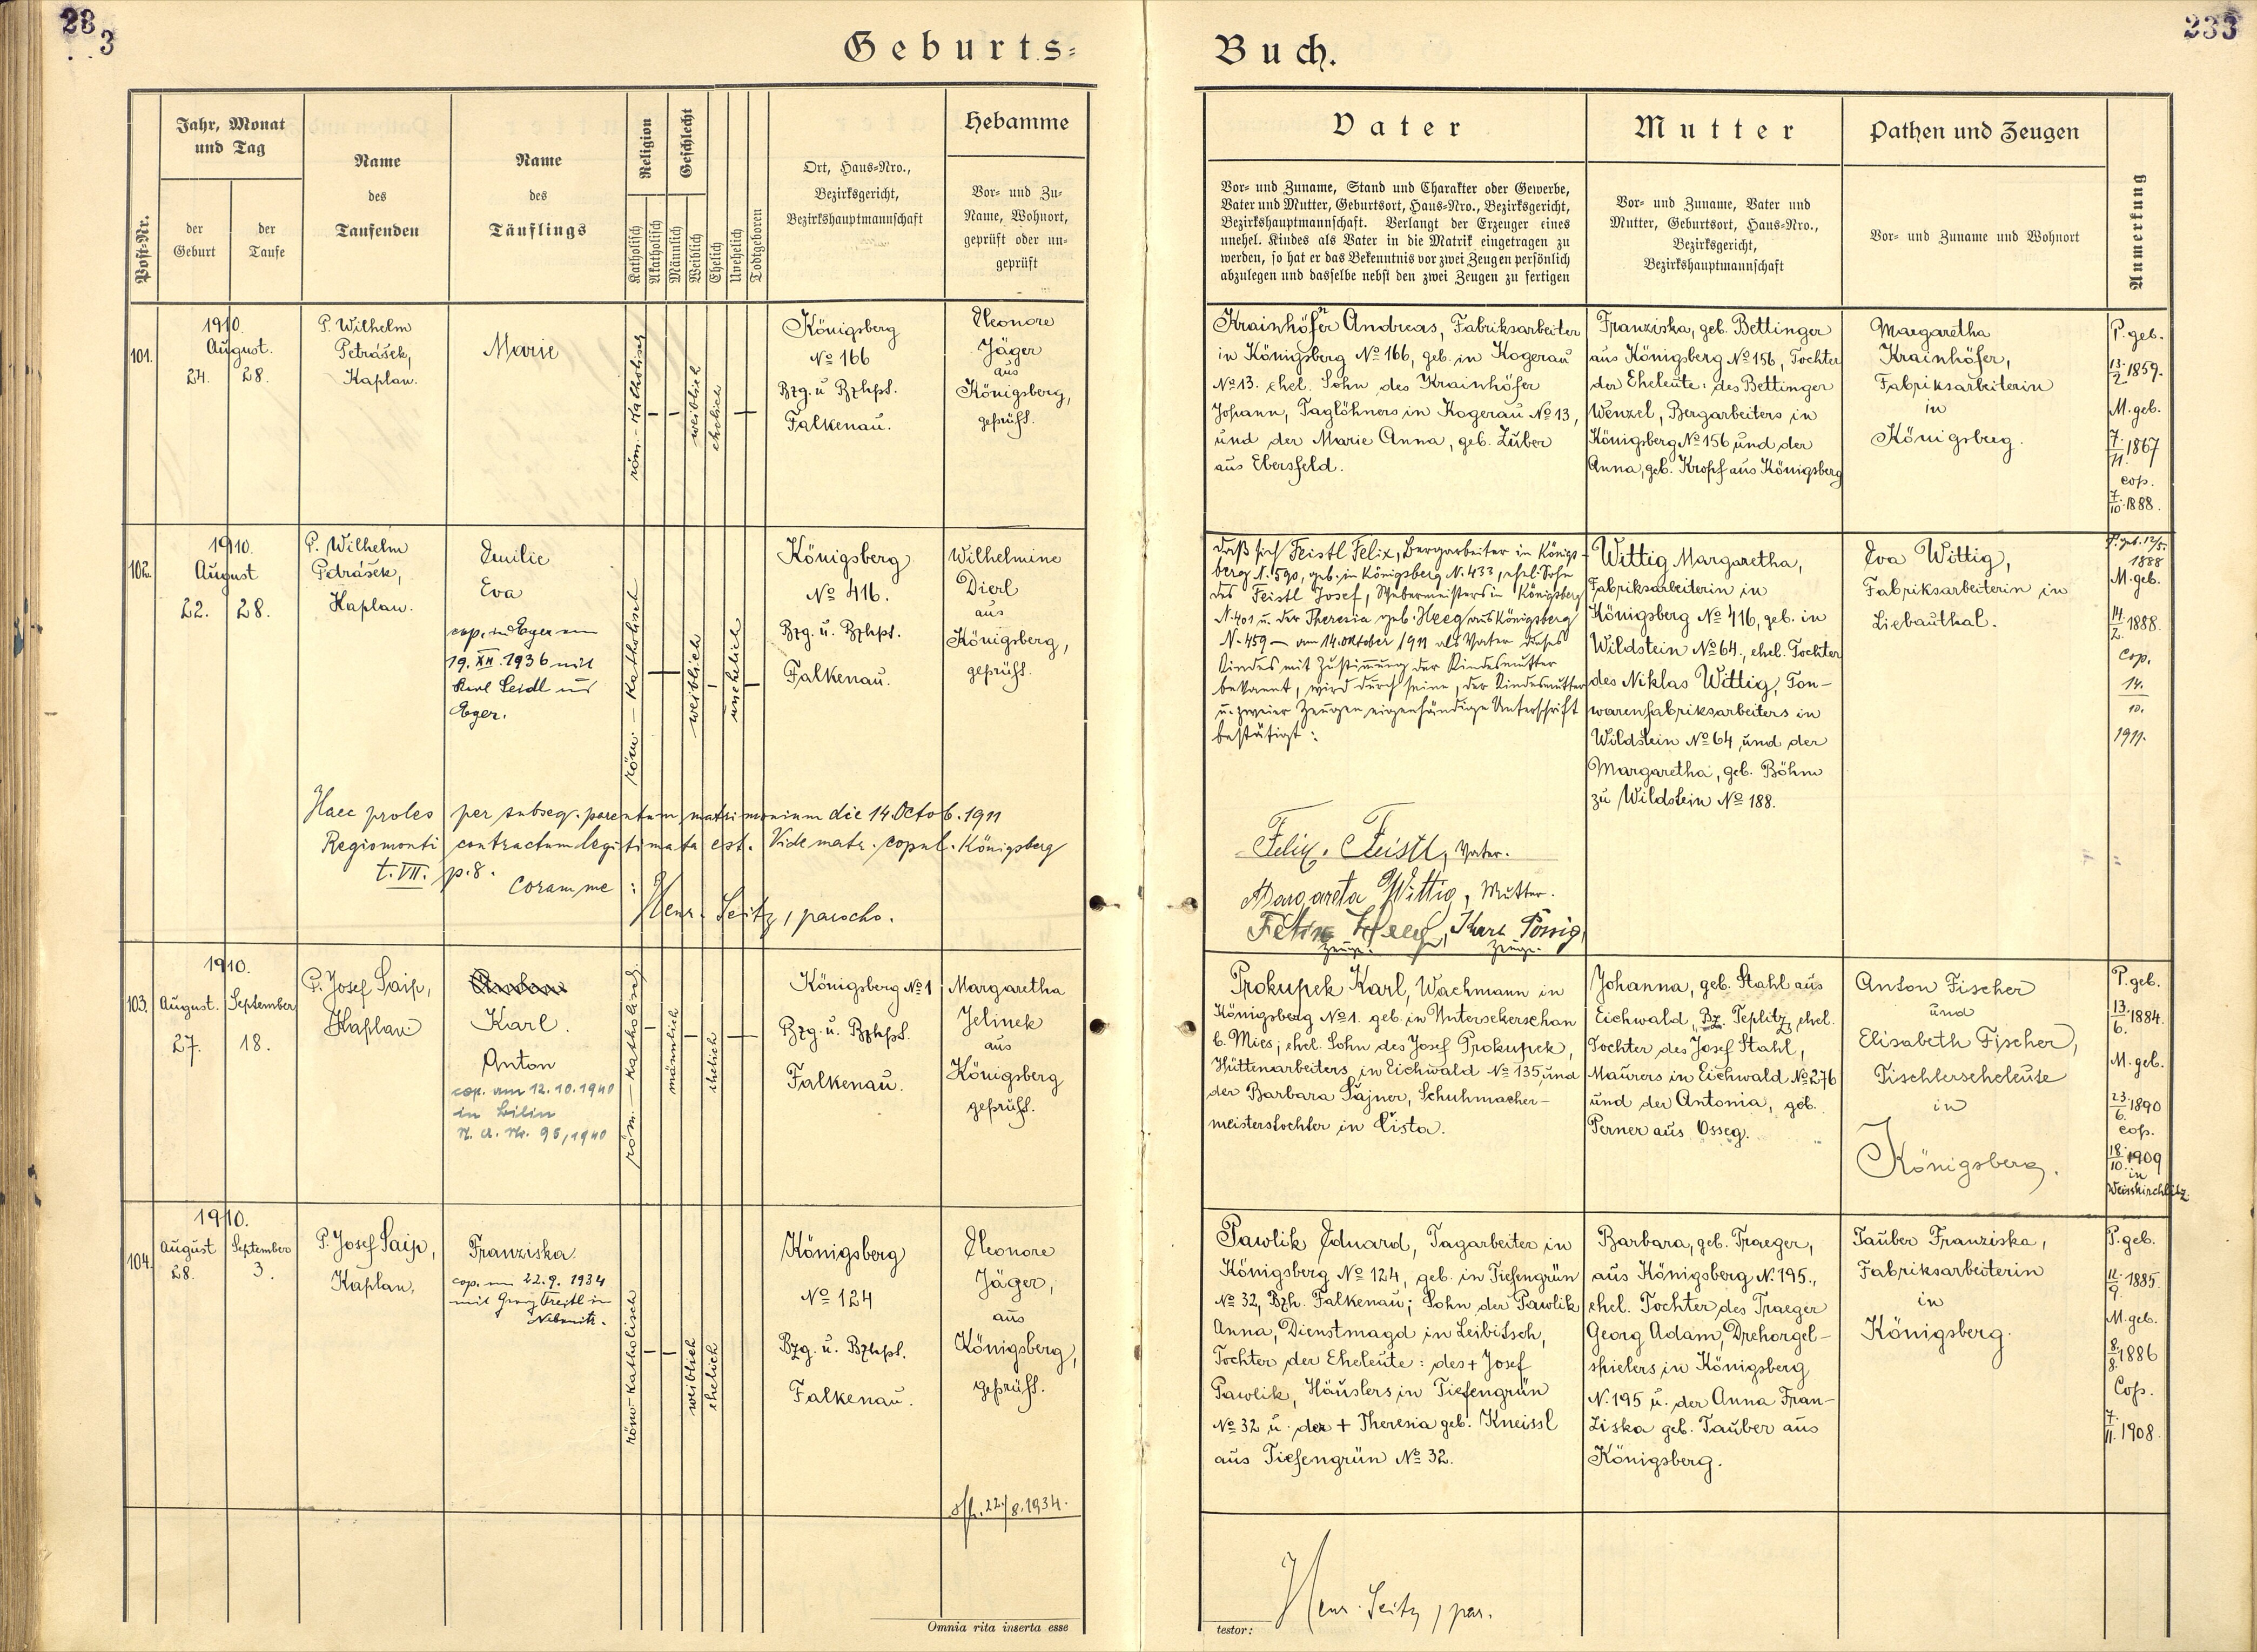 23
3
233
Geburts=
Buch.
Post-Nr.
Jahr, Monat
und Tag
der
Geburt
der
Taufe
Name
des
Taufenden
Name
des
Täuflings
Religion
Katholisch
Akatholisch
Geschlecht
Männlich
Weiblich
Ehelich
Unehelich
Todtgeboren
Ort, Haus=Nro.,
Bezirksgericht,
Bezirkshauptmannschaft
Hebamme
Vor= und Zu=
Name, Wohnort,
geprüft oder un=
geprüft
Vater
Vor= und Zuname, Stand und Charakter oder Gewerbe,
Vater und Mutter, Geburtsort, Haus=Nro., Bezirksgericht,
Bezirkshauptmannschaft. Verlangt der Erzeuger eines
unehel. Kindes als Vater in die Matrik eingetragen zu
werden, so hat er das Bekenntnis vor zwei Zeugen persönlich
abzulegen und dasselbe nebst den zwei Zeugen zu fertigen
Mutter
Vor= und Zuname, Vater und
Mutter, Geburtsort, Haus=Nro.,
Bezirksgericht,
Bezirkshauptmannschaft
Pathen und Zeugen
Vor= und Zuname und Wohnort
Anmerkung
101.
1910.
August.
24. 28.
P. Wilhelm
Petrášek,
Kaplan.
Marie
röm.-katholisch
weiblich
ehelich
Königsberg
No 166
Bzg. u Bzhpt.
Falkenau.
Eleonore
Jäger
aus
Königsberg,
geprüft.
Krainhöfer Andreas, Fabriksarbeiter
in Königsberg No 166, geb. in Kogerau
No 13. ehel. Sohn des Krainhöfer
Johann, Taglöhners in Kogerau No 13,
und der Marie Anna, geb. Zuber
aus Ebersfeld.
Franziska, geb. Bettinger
aus Königsberg No 156, Tochter
der Eheleute: des Bettinger
Wenzel, Bergarbeiters in
Königsberg No 156 und der
Anna, geb. Kropf aus Königsberg
Margaretha
Krainhöfer,
Fabriksarbeiterin
in
Königsberg.
P. geb.
13./2. 1859.
M. geb.
7./11. 1867
cop.
7./10. 1888.
102.
1910.
August
22. 28.
P. Wilhelm
Petrášek,
Kaplan.
Emilie
Eva
cop. in Eger am
19. XII. 1936 mit
Karl Seidl aus
Eger.
röm.-katholisch
weiblich
unehelich
Königsberg
No 416.
Bzg. u. Bzhpt.
Falkenau.
Wilhelmine
Dierl
aus
Königsberg,
geprüft.
Haec proles per subseq. parentum matrimonium die 14. Octob. 1911
Regiomonti contractum legitimata est. Vide matr. copul. Königsberg
t. VII. p. 8.
Coram me:
Henr. Seitz, parocho.
Daß sich Feistl Felix, Bergarbeiter in Königs-
berg N. 590, geb. in Königsberg N. 433, ehel. Sohn
des Feistl Josef, Webermeisters in Königsberg
N. 401 u. der Theresia geb. Heeg aus Königsberg
N. 459 — am 14. Oktober 1911 als Vater dieses
Kindes mit Zustimmung der Kindesmutter
bekannt, wird durch seine, der Kindesmutter
u. zweier Zeugen eigenhändige Unterschrift
bestätigt:
Felix Feistl, Vater.
Margareta Wittig, Mutter.
Heeg, Karl
Zeuge. Zeuge.
Wittig Margaretha,
Fabriksarbeiterin in
Königsberg No 416, geb. in
Wildstein No 64., ehel. Tochter
des Niklas Wittig, Ton-
warenfabriksarbeiters in
Wildstein No 64 und der
Margaretha, geb. Böhm
zu Wildstein No 188.
Eva Wittig,
Fabriksarbeiterin in
Liebauthal.
P. geb. 12/5.
1888
M. geb.
14./2. 1888.
Cop.
14.
10.
1911.
103.
1910.
August. September
27. 18.
P. Josef Saip,
Kaplan
Karl.
Anton
cop. am 12.10.1940
in Bilin
röm.-katholisch
männlich
ehelich
Königsberg No 1
Bzg. u. Bzhpt.
Falkenau.
Margaretha
Jelinek
aus
Königsberg
geprüft.
Prokupek Karl, Wachmann in
Königsberg No 1. geb. in Untersekerschan
b. Mies; ehel. Sohn des Josef Prokupek,
Hüttenarbeiters in Eichwald No 135 und
der Barbara Šajner, Schuhmacher-
meisterstochter in Čista.
Johanna, geb. Stahl aus
Eichwald, Bz. Teplitz, ehel.
Tochter des Josef Stahl,
Maurers in Eichwald No 276
und der Antonia, geb.
Perner aus Osseg.
Anton Fischer
und
Elisabeth Fischer,
Tischlerseheleute
in
Königsberg.
P. geb.
13./6. 1884.
M. geb.
23./6. 1890
cop.
18./10. 1909
in
Weisskirchlitz
104.
1910.
August September
28. 3.
P. Josef Saip,
Kaplan.
Franziska
cop. am 22.9.1934
mit Georg
röm-katholisch
weiblich
ehelich
Königsberg
No 124
Bzg. u. Bzhpt.
Falkenau.
Eleonore
Jäger,
aus
Königsberg,
geprüft.
22./8. 1934.
Pawlik Eduard, Tagarbeiter in
Königsberg No 124, geb. in Tiefengrün
No 32, Bzh. Falkenau; Sohn der Pawlik
Anna, Dienstmagd in Leibitsch,
Tochter der Eheleute: des + Josef
Pawlik, Häuslers in Tiefengrün
No 32 u. der + Theresia geb. Kneissl
aus Tiefengrün No 32.
Barbara, geb. Traeger,
aus Königsberg N. 195.,
ehel. Tochter des Traeger
Georg Adam, Drehorgel-
spielers in Königsberg
N. 195 u. der Anna Fran-
ziska geb. Tauber aus
Königsberg.
Tauber Franziska,
Fabriksarbeiterin
in
Königsberg.
P. geb.
11./9. 1885.
M. geb.
8./8. 1886
Cop.
7./11. 1908.
Omnia rita inserta esse
testor:
Henr. Seitz, par.